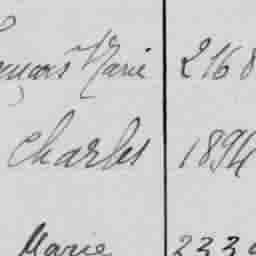 Marie 2168
Charles 1894
Marie 233